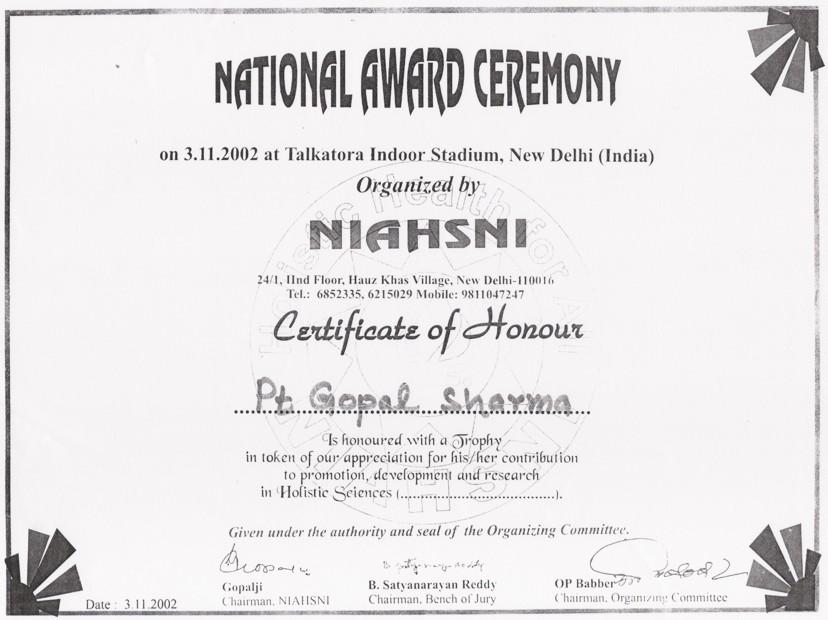 NATIONAL AWARD CEREMONY
on 3.11.2002 at Talkatora Indoor Stadium, New Delhi (India)
Organized by
NIAHSNI
24/1, IInd Floor, Hauz Khas Village, New Delhi-110016
Tel.: 6852335, 6215029 Mobile: 9811047247
Certificate of Honour
Pt Gopal Sharma
Is honoured with a Trophy
in token of our appreciation for his/her contribution
to promotion, development and research
in Holistic Sciences (...............................).
Given under the authority and seal of the Organizing Committee.
Gopalji B. Satyanarayan Reddy OP Babber
Chairman, NIAHSNI Chairman, Bench of Jury Chairman, Organizing Committee
Date : 3.11.2002
Holistic Health for All
NIAHSNI